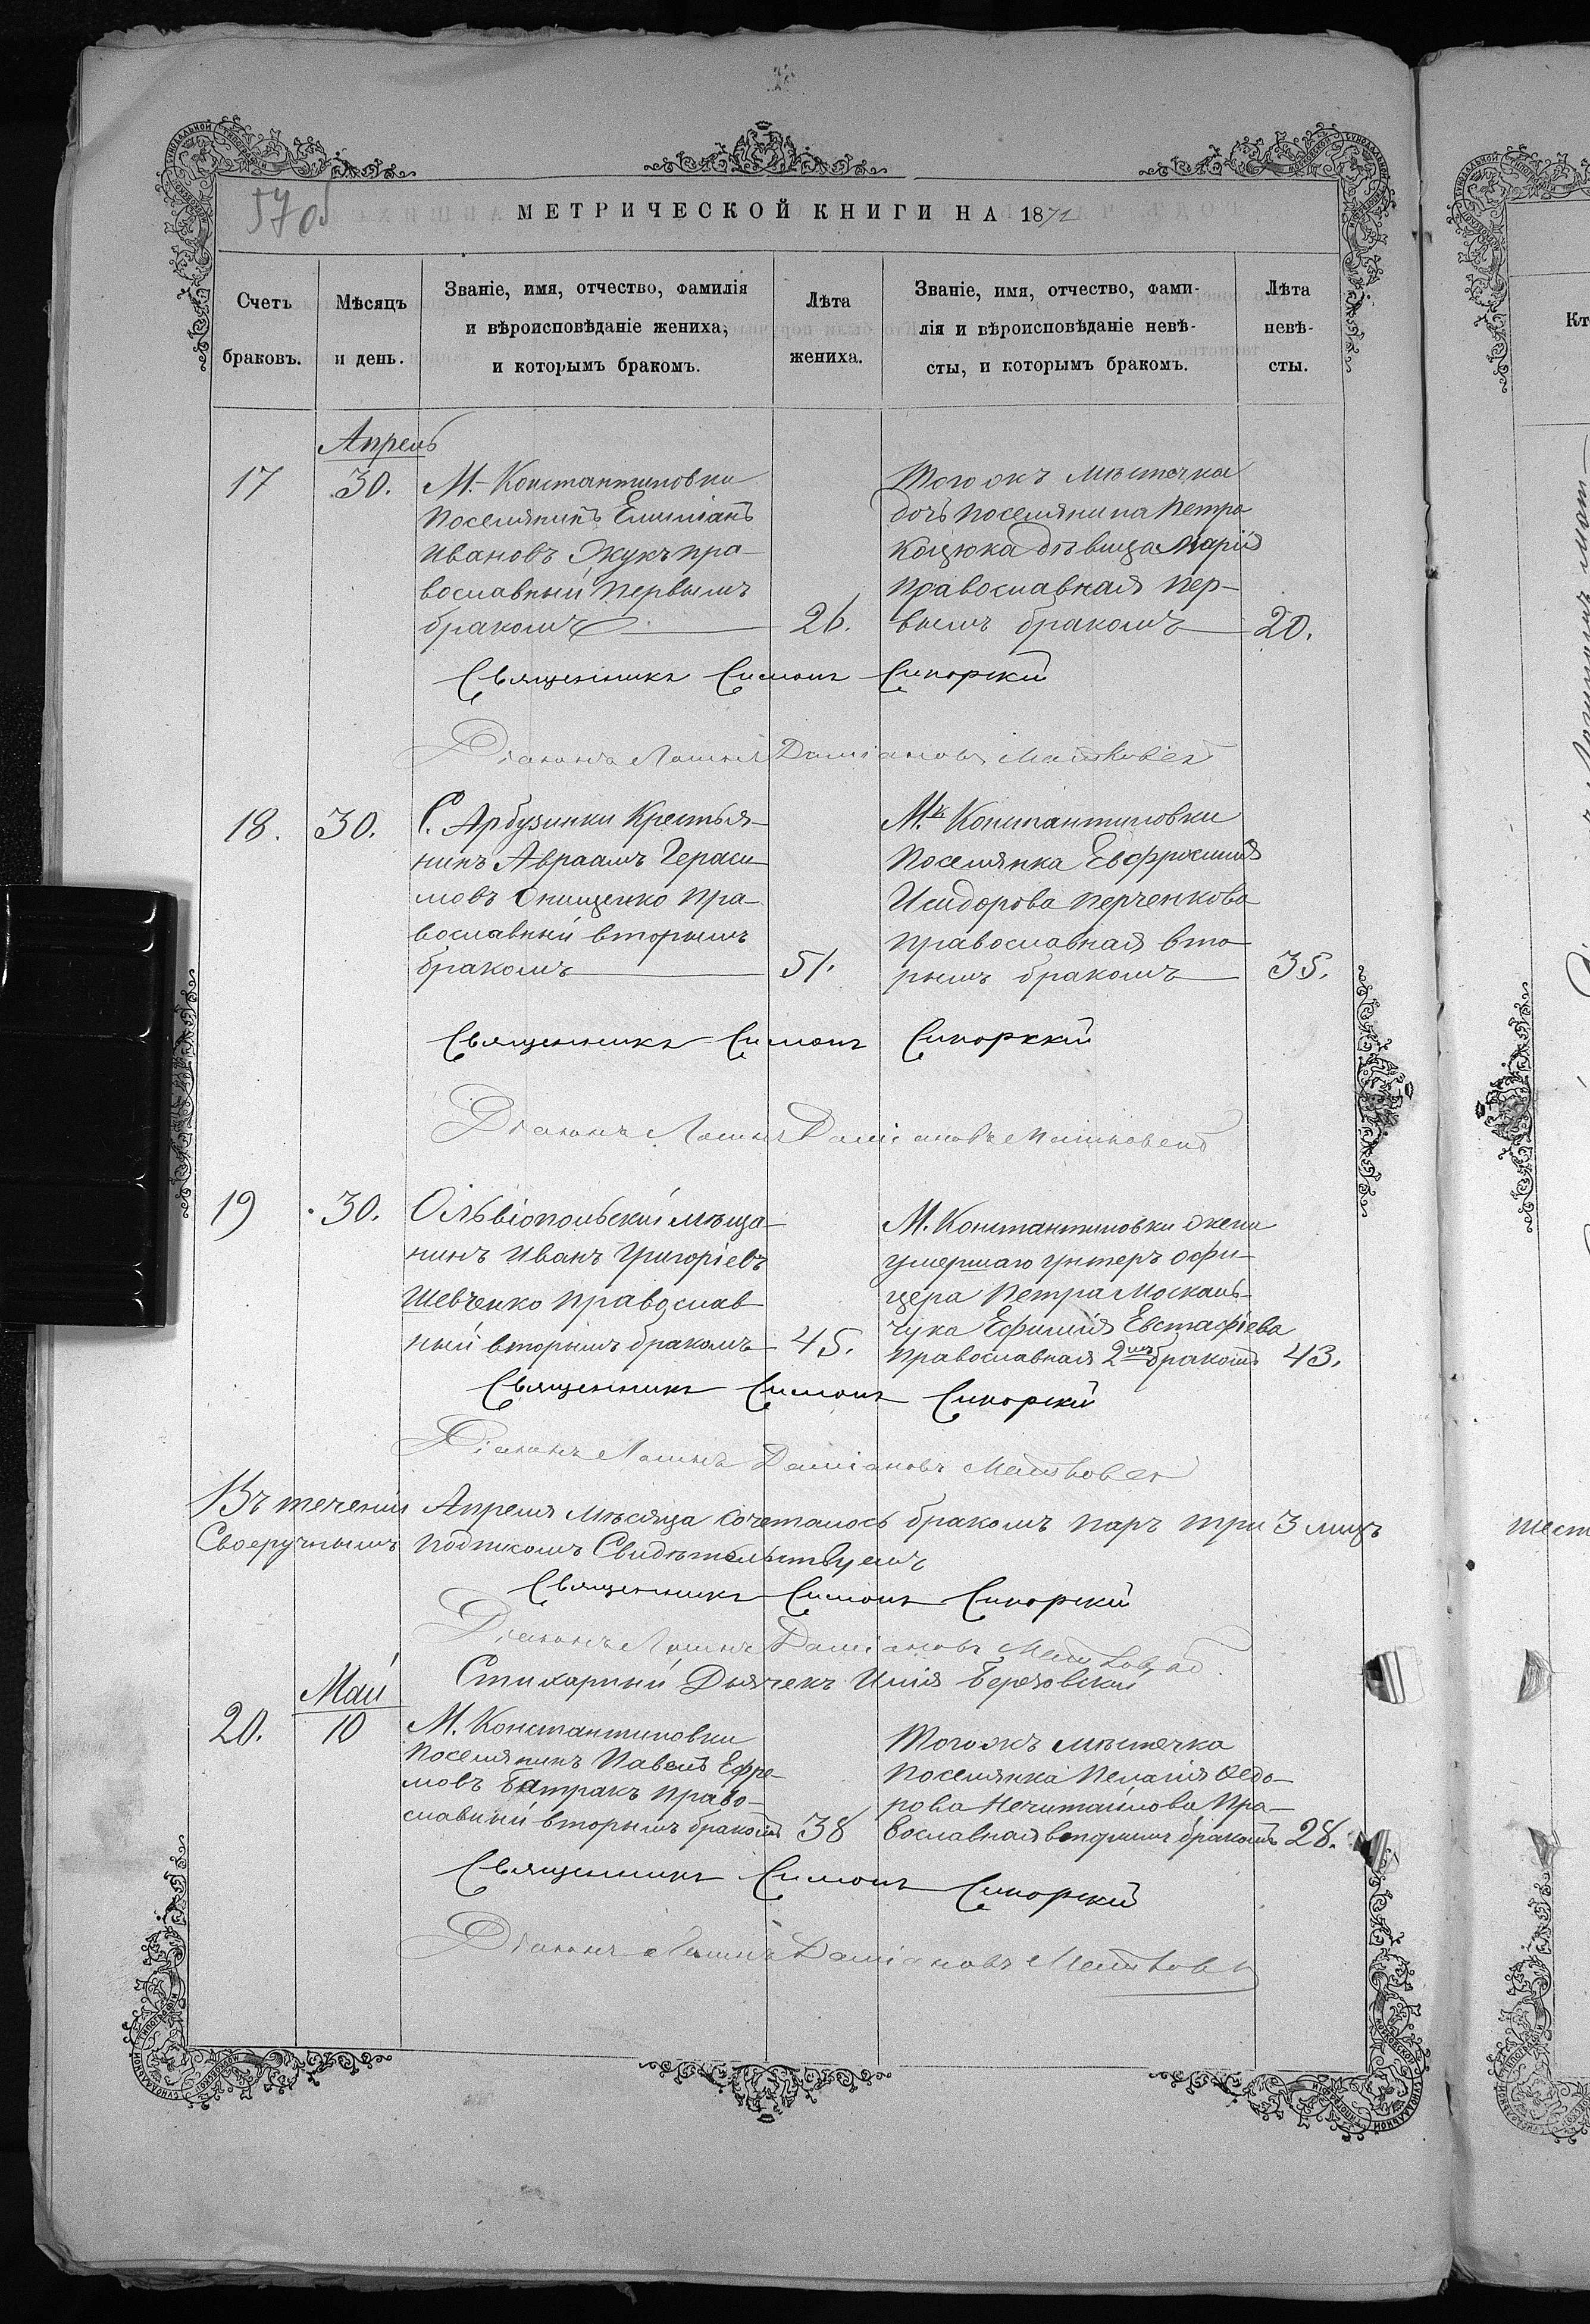 57 об
МЕТРИЧЕСКОЙ КНИГИ НА 1871
Счетъ браковъ.
Мѣсяцъ и день.
Званіе, имя, отчество, фамилія
и вѣроисповѣданіе жениха,
и которымъ бракомъ.
Лѣта жениха.
Званіе, имя, отчество, фами-
лія и вѣроисповѣданіе невѣ-
сты, и которымъ бракомъ.
Лѣта невѣ-
сты.
Апрель
17
30.
М. Константиновки
Поселянинъ Емиліанъ
Ивановъ Жукъ пра-
вославный первымъ
бракомъ
26.
Того жъ мѣстечка
дочь поселянина Петра
Коцюка дѣвица Марія
православная пер-
вымъ бракомъ
20.
Священникъ Симонъ Сикорскій
Діаконъ Логинъ Даміановъ
18.
30.
С. Арбузинки Крестья-
нинъ Авраамъ Гераси-
мовъ Онищенко пра-
вославный вторымъ
бракомъ
51.
М. Константиновки
Поселянка Евфросинія
Исидорова Перченкова
православная вто-
рымъ бракомъ
35.
Священникъ Симонъ Сикорскій
Діаконъ Логинъ Даміановъ
19
30.
Ольвіопольскій мѣща-
нинъ Иванъ Григоріевъ
Шевченко православ-
ный вторымъ бракомъ
45.
М. Константиновки жена
умершаго унтеръ офи-
цера Петра Москаль-
чука Ефимія Евстафіева
православная 2мъ бракомъ
43.
Священникъ Симонъ Сикорскій
Діаконъ Логинъ Даміановъ
Въ теченіи Апреля мѣсяца сочеталось бракомъ паръ три 3
Своеручнымъ подписомъ Свидѣтельствуемъ
Священникъ Симонъ Сикорскій
Діаконъ Логинъ Даміановъ
Стихарный Дьячекъ Илія Березовскій
Май
20.
10
М. Константиновки
поселянинъ Павелъ Ефре-
мовъ Батракъ право-
славный вторымъ бракомъ
38
Того жъ мѣстечка
поселянка Пелагія Ѳедо-
рова Нечитайлова пра-
вославная вторымъ бракомъ
28.
Священникъ Симонъ Сикорскій
Діаконъ Логинъ Даміановъ